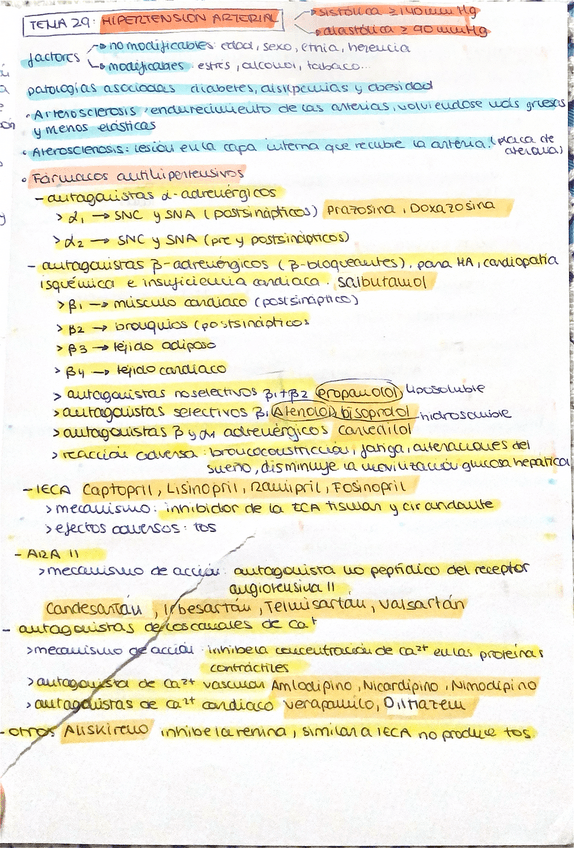 TEMA 29: HIPERTENSION ARTERIAL → sistólica ≥ 140 mm Hg
→ diastólica ≥ 90 mm Hg
factores → no modificables edad, sexo, etnia, herencia
→ modificables: estrés, alcohol, tabaco...
patologías asociadas diabetes, dislipemias y obesidad
• Arterosclerosis: endurecimiento de las arterias, volviendose más gruesas
y menos elásticas
• Aterosclerosis: lesión en la capa interna que recubre la arteria. (placa de ateroma)
• Fármacos antihipertensivos
- antagonistas α-adrenérgicos
> α1 → SNC y SNA (postsinápticos) Prazosina, Doxazosina
> α2 → SNC y SNA (pre y postsinápticos)
- antagonistas β-adrenérgicos (β-bloqueantes). para HA, cardiopatía
isquémica e insuficiencia cardiaca. salbutamol
> β1 → músculo cardiaco (postsináptico)
> β2 → bronquios (postsinápticos
> β3 → tejido adiposo
> β4 → tejido cardiaco
> antagonistas no selectivos β1+β2 Propanolol, liposoluble
> antagonistas selectivos β1 Atenolol bisoprolol hidrosoluble
> antagonistas β y α1 adrenérgicos carvedilol
> reacción adversa: broncoconstricción, fatiga, alteraciones del
sueño, disminuye la movilización glucosa hepática
- IECA Captopril, Lisinopril, Ramipril, Fosinopril
> mecanismo: inhibidor de la ECA tisular y circundante
> efectos adversos: tos
- ARA II
> mecanismo de acción: antagonista no peptídico del receptor
angiotensiva II
Candesartán, Irbesartán, Telmisartan, valsartán
- antagonistas de los canales de Ca+
> mecanismo de acción: inhibe la concentración de Ca2+ en las proteínas
contráctiles
> antagonista de Ca2+ vascular Amlodipino, Nicardipino, Nimodipino
> antagonistas de Ca2+ cardiaco verapamilo, Diltiazem
- otros Aliskireno inhibe la renina, similar a IECA no produce tos